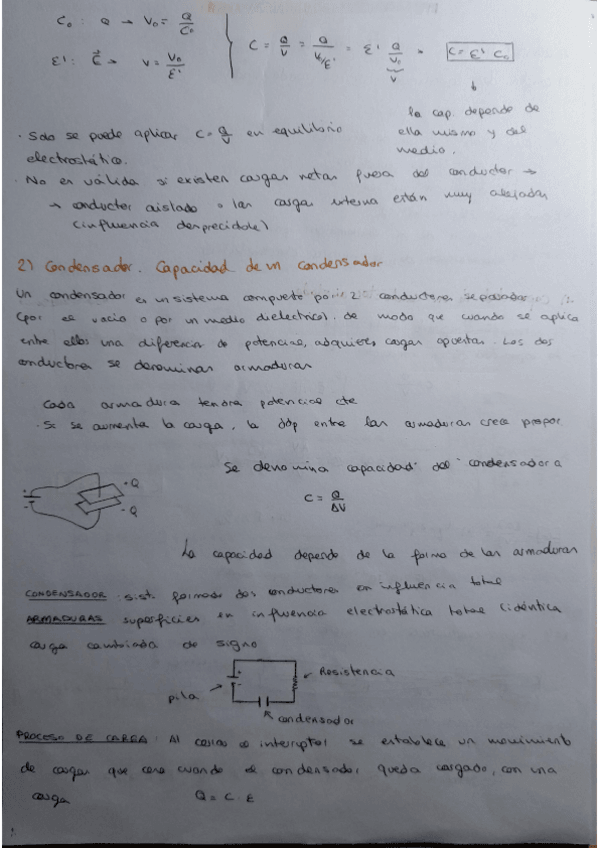 C₀ : Q → V₀ = Q/C₀
ε' : C⃗ → V = V₀/ε'
C = Q/V = Q/(V₀/ε') = ε' Q/V₀ → C = ε' C₀
la cap. depende de
ella misma y del
medio.
· Solo se puede aplicar C = Q/V en equilibrio
electrostático.
· No es válida si existen cargas netas fuera del conductor →
→ conductor aislado o las cargas externa están muy alejadas
(influencia despreciable)
2) Condensador. Capacidad de un condensador
Un condensador es un sistema compuesto por 2 conductores separados
(por el vacío o por un medio dieléctrico), de modo que cuando se aplica
entre ellos una diferencia de potencial, adquieren cargas opuestas. Los dos
conductores se denominan armaduras
Cada armadura tendrá potencial cte
· Si se aumenta la carga, la ddp entre las armaduras crece propor
Se denomina capacidad del condensador a
+Q
-Q
+
-
C = Q/ΔV
La capacidad depende de la forma de las armaduras
CONDENSADOR : sist. formado dos conductores en influencia total
ARMADURAS superficies en influencia electrostática total (idéntica
carga cambiada de signo
Resistencia
pila
+
-
condensador
PROCESO DE CARGA : Al cerrar el interruptor se establece un movimiento
de cargas que cesa cuando el condensador queda cargado, con una
carga Q = C · ε